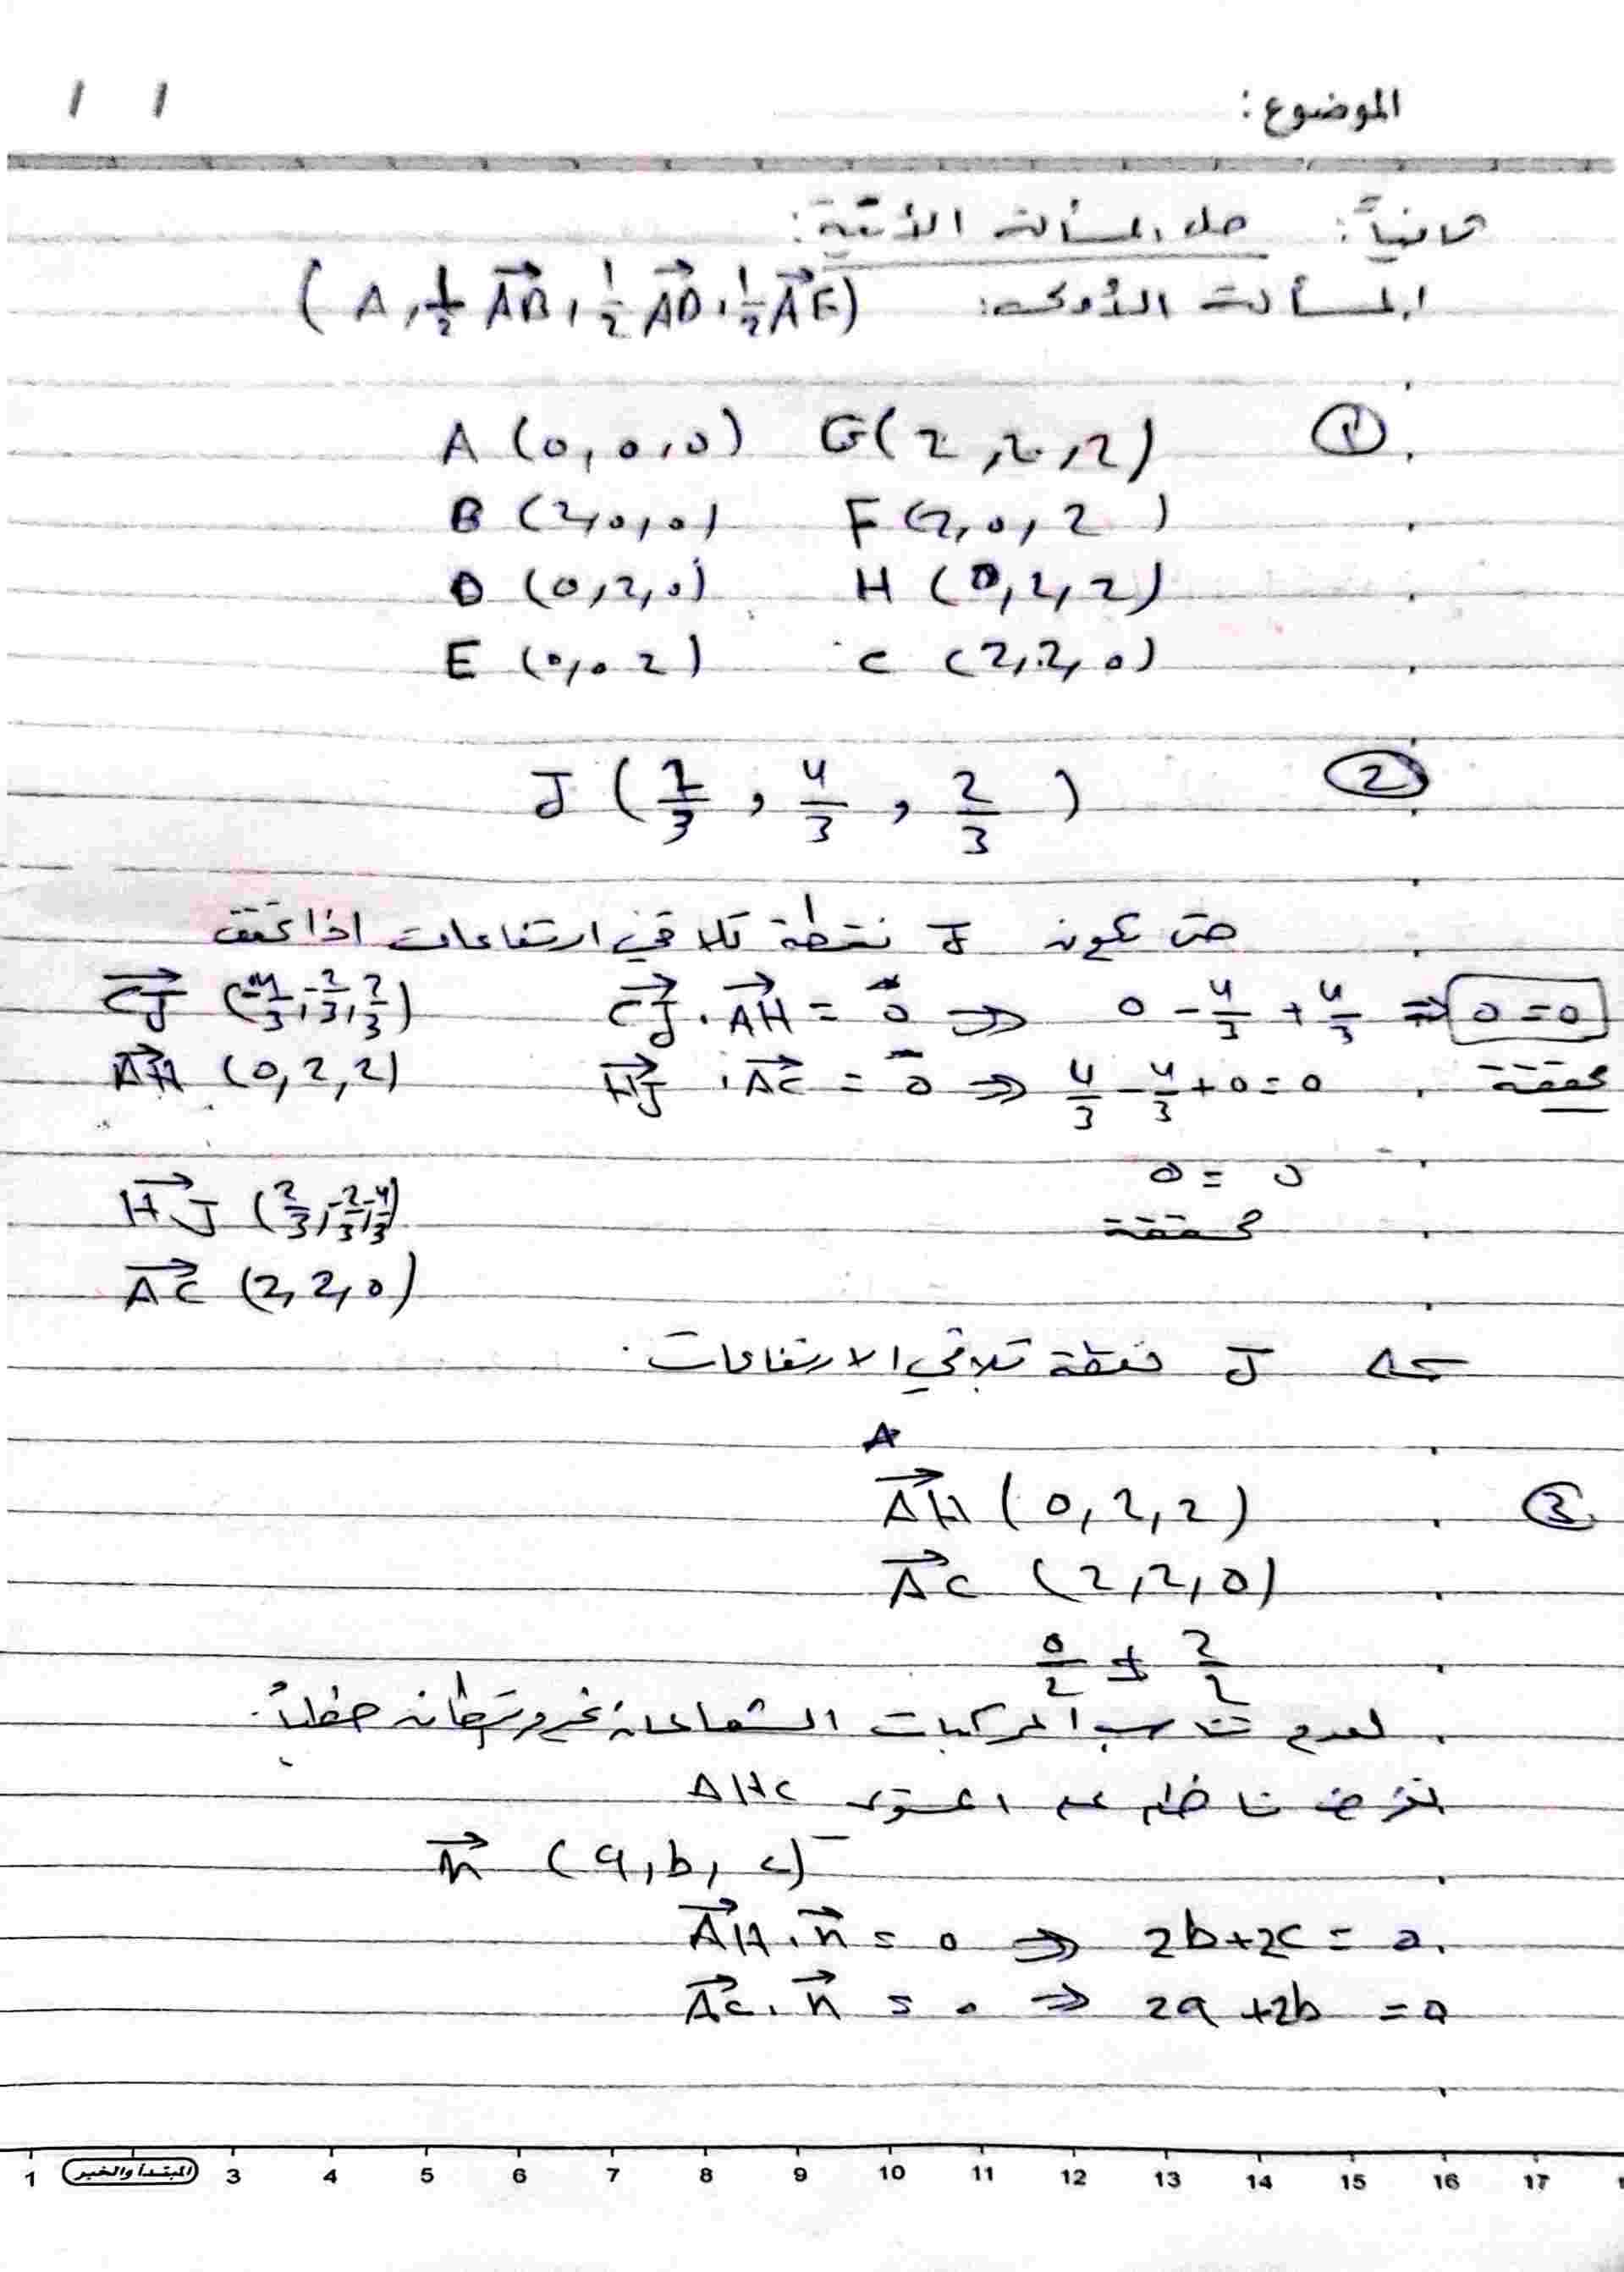 الموضوع: / /
ثانياً: حل المسألة الآتية:
المسألة الأولى: (A, 1/2 AB→, 1/2 AD→, 1/2 AE→)
①
A (0,0,0) G(2,2,2)
B (2,0,0) F(2,0,2)
D (0,2,0) H (0,2,2)
E (0,0 2) C (2,2,0)
② J (2/3, 4/3, 2/3)
حتى تكون J نقطة تلاقي ارتفاعات اذا تحقق
CJ→ (-4/3, -2/3, 2/3) CJ→ . AH→ = 0→ ⇒ 0 - 4/3 + 4/3 ⇒ 0=0
AH→ (0,2,2) HJ→ . AC→ = 0 ⇒ 4/3 - 4/3 + 0 = 0 محققة
0 = 0
HJ→ (2/3, -2/3, -4/3) محققة
AC→ (2,2,0)
⇐ J نقطة تلاقي الارتفاعات.
A
③ AH→ (0,2,2)
AC→ (2,2,0)
0/2 ≠ 2/2
لعدم تناسب المركبات الشعاعان غير مرتبطان خطياً.
نفرض ناظم على المستوي AHC
n→ (a, b, c)
AH→ . n→ = 0 ⇒ 2b+2c = 0.
AC→ . n→ = 0 ⇒ 2a +2b = 0
1 المبتدأ والخبر 3 4 5 6 7 8 9 10 11 12 13 14 15 16 17